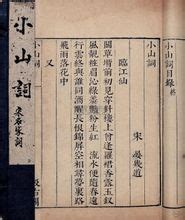 小山詞目錄 終
小山詞
宋 晏幾道
臨江仙
鬬草階前初見穿針樓上曾逢羅裙香露玉釵
風靚粧眉沁綠羞臉粉生紅 流水便隨春遠
行雲終與誰同酒醒長恨錦屏空相尋夢裏路
飛雨落花中
又
小山詞
小山詞
宋名家詞